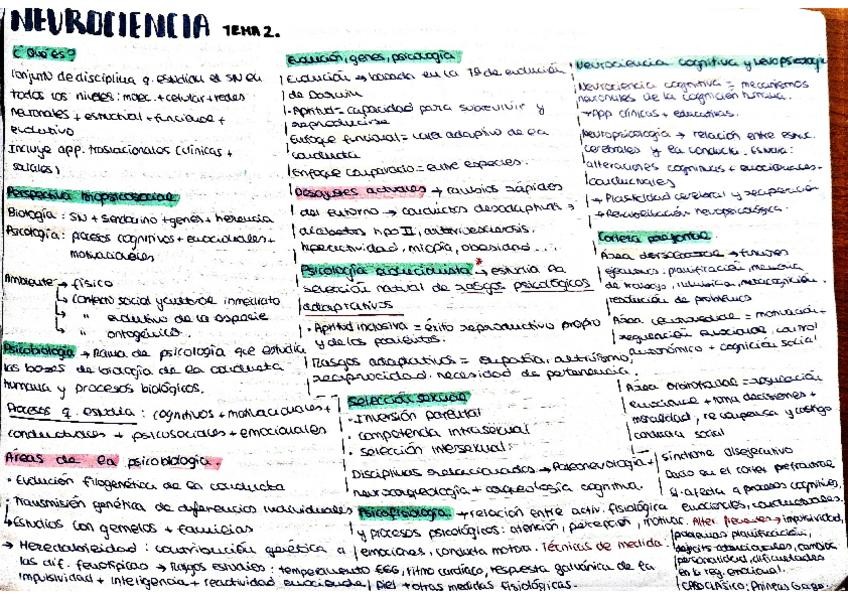 NEUROCIENCIA TEMA 2.
¿Qué es?
Conjunto de disciplina q. estudian el SN en
todos los niveles: molec. + celular + redes
neuronales + estructural + funcional +
evolutivo
Incluye app. traslacionales (clínicas +
sociales)
Perspectiva biopsicosocial
Biología: SN + sendocrino + genes + herencia
Psicología: procesos cognitivos + emocionales +
motivacionales
Ambiente → físico
↳ contexto social y cultural inmediato
↳ " evolutivo de la especie
↳ " ontogénico.
Psicobiología → Rama de psicología que estudia
las bases de biología de la conducta
humana y procesos biológicos.
Procesos q. estudia: cognitivos + motivacionales +
conductuales + psicosociales + emocionales
Áreas de la psicobiología.
• Evolución filogenética de la conducta
Transmisión genética de diferencias individuales
↳ Estudios con gemelos + familias
→ Heredabilidad: contribución genética a
las dif. fenotípicas → Rasgos estudios: temperamento
impulsividad + inteligencia + reactividad emocional
Evolución, genes, psicología
Evolución → basada en la Tª de evolución
de Darwin
• Aptitud = capacidad para sobrevivir y
reproducirse
Enfoque funcional = valor adaptivo de la
conducta
Enfoque comparado = entre especies.
Desajustes actuales → cambios rápidos
del entorno → conductas desadaptativas →
diabetes tipo II, aterosclerosis,
hiperactividad, miopía, obesidad...
Psicología evolucionista * → estudia la
selección natural de rasgos psicológicos
adaptativos
• Aptitud inclusiva = éxito reproductivo propio
y de los parientes.
Rasgos adaptativos = empatía, altruismo,
reciprocidad, necesidad de pertenencia.
Selección sexual
• Inversión parental
• competencia intrasexual
• selección intersexual
Disciplinas relacionadas → Paleoneurología +
neuroarqueología + arqueología cognitiva.
Psicofisiología → relación entre activ. fisiológica
y procesos psicológicos: atención, percepción, motivac.
emociones, conducta motora. Técnicas de medida:
EEG, ritmo cardíaco, respuesta galvánica de la
piel + otras medidas fisiológicas.
Neurociencia cognitiva y neuropsicología
Neurociencia cognitiva = mecanismos
neuronales de la cognición humana.
→ App clínicas + educativas.
Neuropsicología → relación entre estruc.
cerebrales y la conducta. Estudia:
alteraciones cognitivas + emocionales -
conductuales
→ Plasticidad cerebral y recuperación
→ Rehabilitación neuropsicológica.
Corteza prefrontal
Área dorsolateral → funciones
ejecutivas: planificación, memoria
de trabajo, metacognición,
resolución de problemas
Área ventromedial = motivación +
regulación emocional, control
autonómico + cognición social
Área orbitofrontal = regulación
emocional + toma decisiones +
moralidad, recompensa y castigo
conducta social
síndrome disejecutivo
Daño en el córtex prefrontal
afecta a procesos cognitivos,
emocionales, conductuales.
Alter. frecuentes → impulsividad,
problemas planificación,
déficits atencionales, cambios
personalidad, dificultades
en la reg. emocional.
Caso clásico: Phineas Gage.